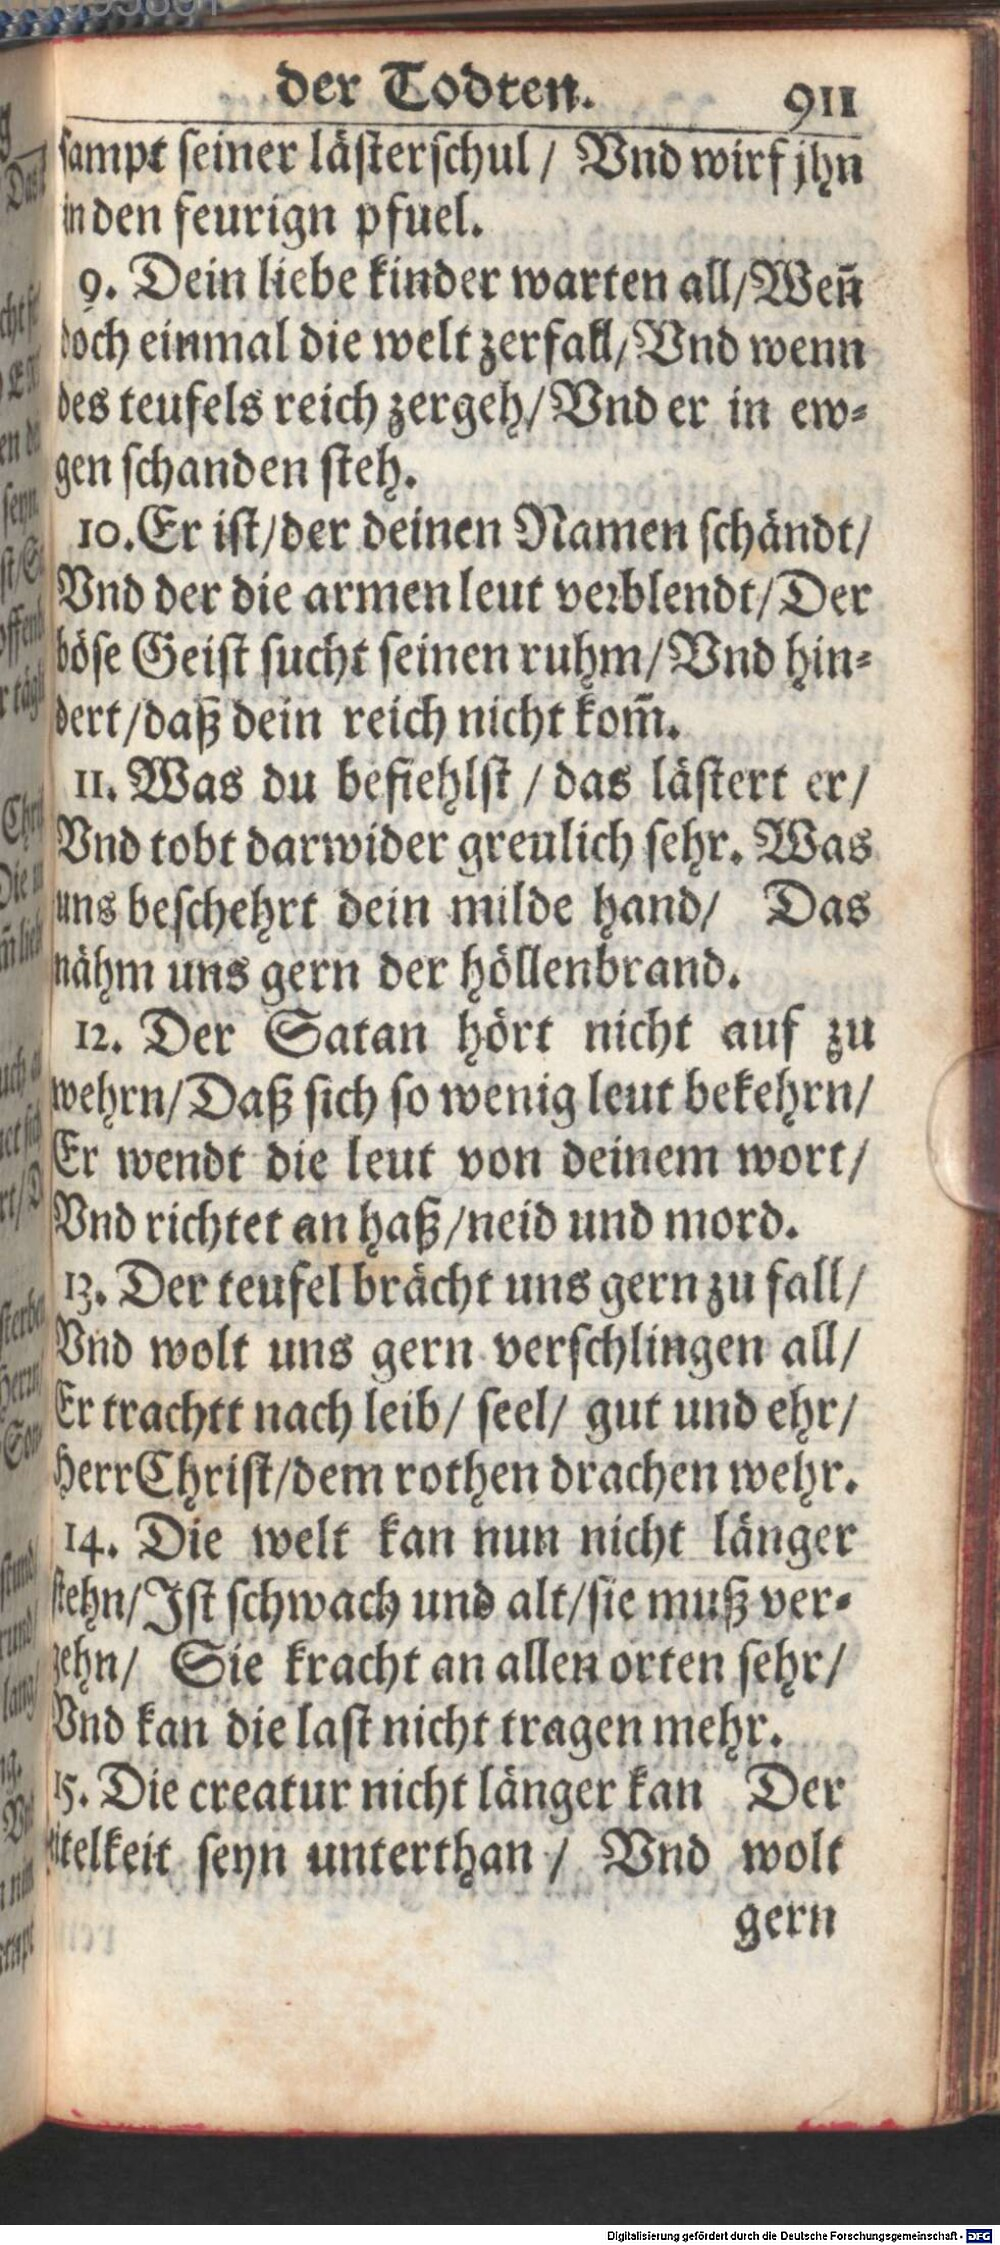 der Todten. 911
sampt seiner lästerschul / Vnd wirf jhn
in den feurign pfuel.
9. Dein liebe kinder warten all/Wen̄
doch einmal die welt zerfall/Vnd wenn
des teufels reich zergeh/Vnd er in ew⸗
gen schanden steh.
10. Er ist/der deinen Namen schändt/
Vnd der die armen leut verblendt/Der
böse Geist sucht seinen ruhm/Vnd hin⸗
dert/daß dein reich nicht kom̄.
11. Was du befiehlst / das lästert er/
Vnd tobt darwider greulich sehr. Was
uns beschehrt dein milde hand/ Das
nähm uns gern der höllenbrand.
12. Der Satan hört nicht auf zu
wehrn/Daß sich so wenig leut bekehrn/
Er wendt die leut von deinem wort/
Vnd richtet an haß/neid und mord.
13. Der teufel brächt uns gern zu fall/
Vnd wolt uns gern verschlingen all/
Er trachtt nach leib/ seel/ gut und ehr/
Herr Christ/dem rothen drachen wehr.
14. Die welt kan nun nicht länger
stehn/Ist schwach und alt/sie muß ver⸗
gehn/ Sie kracht an allen orten sehr/
Vnd kan die last nicht tragen mehr.
15. Die creatur nicht länger kan Der
itelkeit seyn unterthan / Vnd wolt
gern
Digitalisierung gefördert durch die Deutsche Forschungsgemeinschaft - DFG